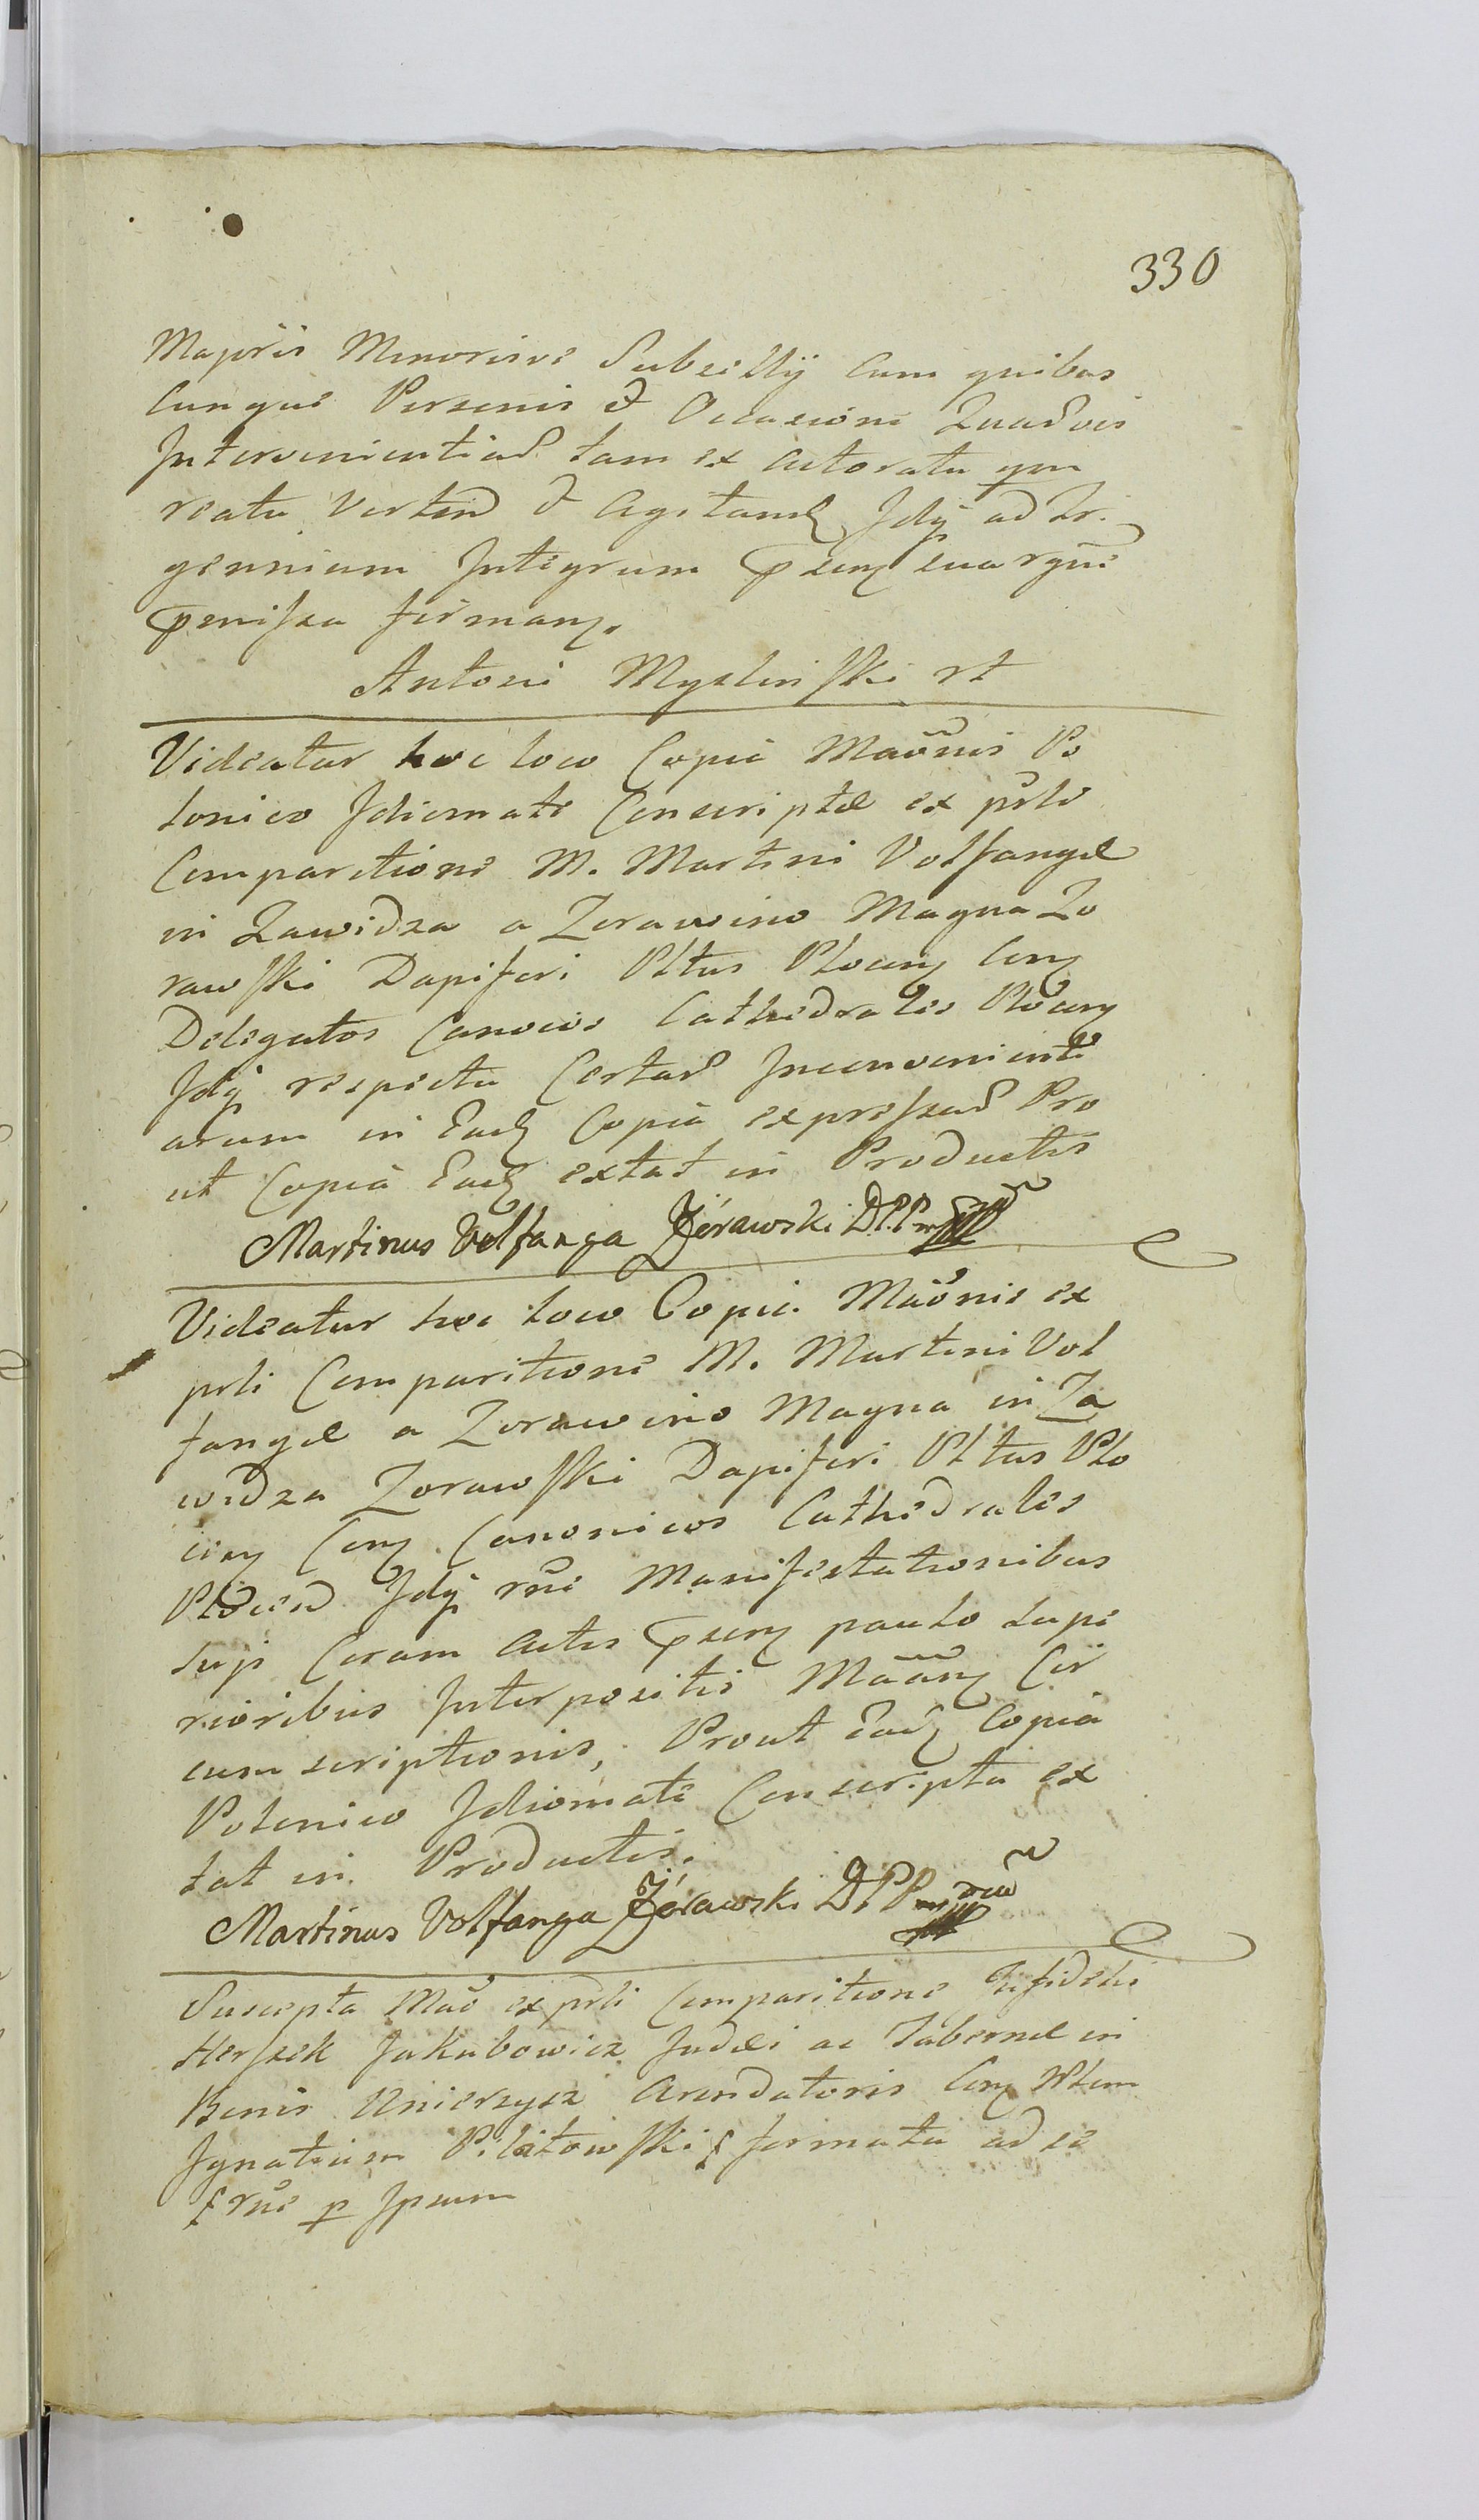 330
Majoris Minorisve Subsellij cum quibus
cunque Personis & Occasione Quarvis
Intervenientiar tam ex Actoratu qm
reatu Verten & Agitand Idq ad Tri
gennium Integrum Psenq sua rgne
Pmissa firmanq.
Antoni Mysliński rt
Videatur hoc loco Copia Maonis Po
lonico Idiomate Conscriptæ ex prli
Comparitione M. Martini Volfangæ
in Zawidza a Zorawino Magna Zo
rawski Dapiferi Pltus Plocenq Conq
Delegatos Canocios Cathedrales Plocenq
Idq respectu Certar Inconvenienti
arum in Ead Copia expressar Pro
ut Copia Ead extat in Productis
Martinus Volfanga Żórawski D.P.P. mp
Videatur hoc loco Copia Maonis ex
prli Comparitione M. Martini Vol
fangæ a Zorawino Magna in Za
widza Zorawski Dapiferi Pltus Plo
cenq Conq Canonicos Cathedrales
Plocen Idq rne Manifestationibus
suis Coram Actis Psenq paulo supe
rioribus Interpositis Maanq Cir
cumscriptionis, Prout Ead Copia
Polonico Idiomate Conscripta ex
tat in Productis.
Martinus Volfanga Żórawski D.P.P. mp
Suscepta Mao ex prli Comparitione Infidelis
Herszek Jakubowicz Judæi ac Tabernæ in
Bonis Unierzysz Arendatoris Conq
Ignatium Pilitowski formata ad se
rne p Ipsum